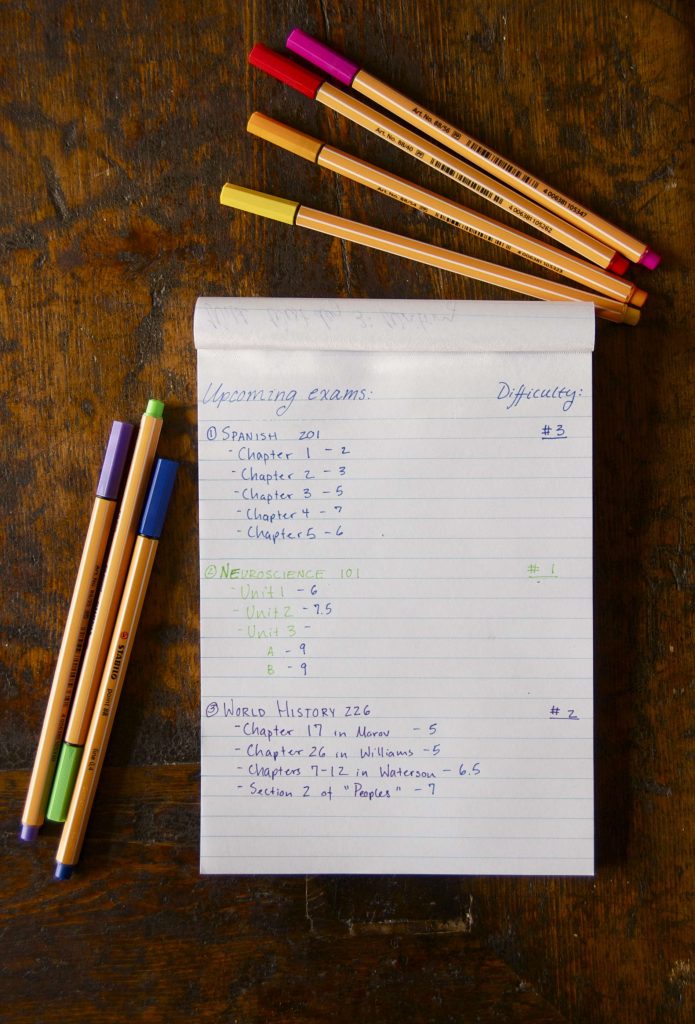 Art. No. 88/56
4 006381 105347
Art. No. 88/40
4 006381 105262
Upcoming exams: Difficulty:
① SPANISH 201 #3
- Chapter 1 - 2
- Chapter 2 - 3
- Chapter 3 - 5
- Chapter 4 - 7
- Chapter 5 - 6
② NEUROSCIENCE 101 # 1
- Unit 1 - 6
- Unit 2 - 7.5
- Unit 3 -
A - 9
B - 9
③ WORLD HISTORY 226 # 2
- Chapter 17 in Marov - 5
- Chapter 26 in Williams - 5
- Chapters 7-12 in Waterson - 6.5
- Section 2 of "Peoples" - 7
STABILO point 88